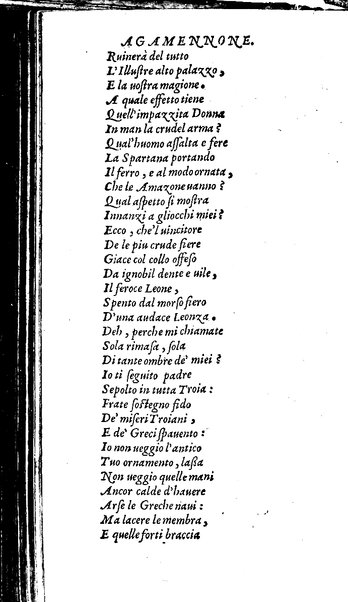 AGAMENNONE.
Ruinerà del tutto
L'Illuſtre alto palazzo,
E la uoſtra magione.
A quale effetto tiene
Quell'impazzita Donna
In man la crudel arma?
Qual'huomo aſſalta e fere
La Spartana portando
Il ferro, e al modo ornata,
Che le Amazone uanno?
Qual aſpetto ſi moſtra
Innanzi a gliocchi miei?
Ecco, che'l uincitore
De le piu crude fiere
Giace col collo offeſo
Da ignobil dente e uile,
Il feroce Leone,
Spento dal morſo fiero
D'una audace Leonza.
Deh, perche mi chiamate
Sola rimaſa, ſola
Di tante ombre de' miei?
Io ti ſeguito padre
Sepolto in tutta Troia:
Frate ſoſtegno fido
De' miſeri Troiani,
E de' Greci ſpauento:
Io non ueggio l'antico
Tuo ornamento, laſſa
Non ueggio quelle mani
Ancor calde d'hauere
Arſe le Greche naui:
Ma lacere le membra,
E quelle forti braccia